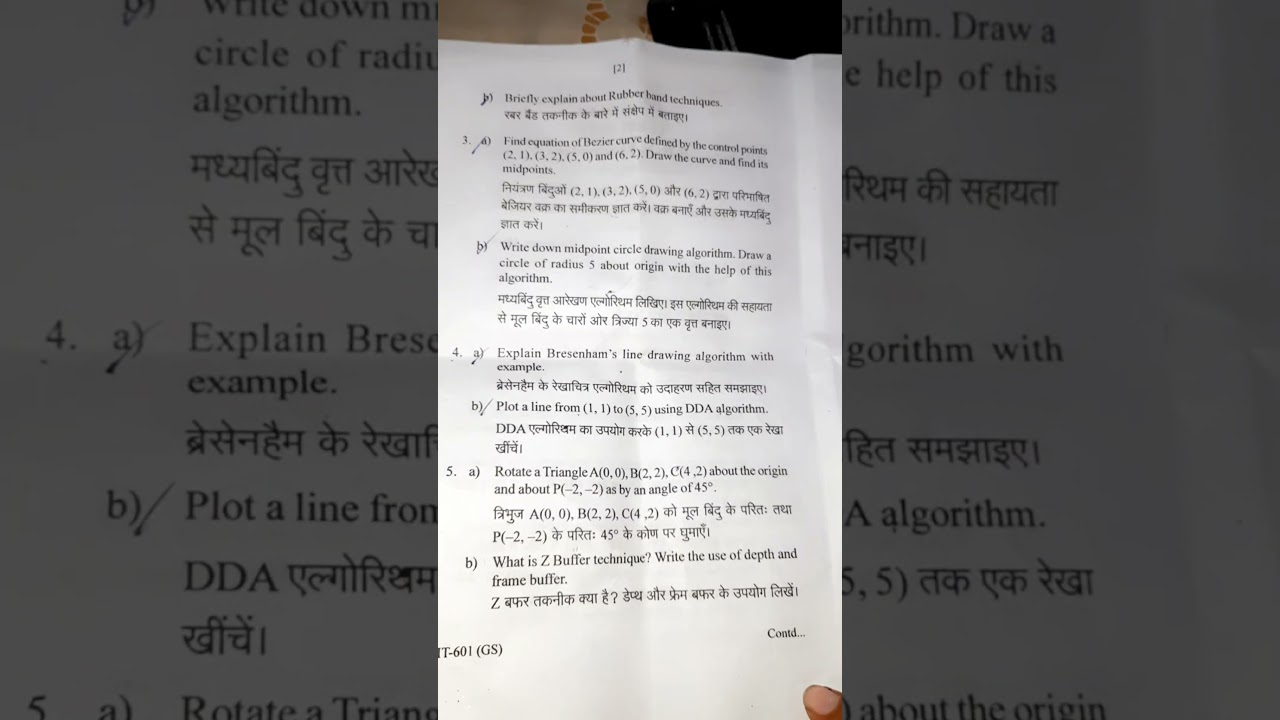 [2]
b) Briefly explain about Rubber band techniques.
रबर बैंड तकनीक के बारे में संक्षेप में बताइए।
3. a) Find equation of Bezier curve defined by the control points
(2, 1), (3, 2), (5, 0) and (6, 2). Draw the curve and find its
midpoints.
नियंत्रण बिंदुओं (2, 1), (3, 2), (5, 0) और (6, 2) द्वारा परिभाषित
बेजियर वक्र का समीकरण ज्ञात करें। वक्र बनाएँ और उसके मध्यबिंदु
ज्ञात करें।
b) Write down midpoint circle drawing algorithm. Draw a
circle of radius 5 about origin with the help of this
algorithm.
मध्यबिंदु वृत्त आरेखण एल्गोरिथम लिखिए। इस एल्गोरिथम की सहायता
से मूल बिंदु के चारों ओर त्रिज्या 5 का एक वृत्त बनाइए।
4. a) Explain Bresenham's line drawing algorithm with
example.
ब्रेसेनहैम के रेखाचित्र एल्गोरिथम को उदाहरण सहित समझाइए।
b) Plot a line from (1, 1) to (5, 5) using DDA algorithm.
DDA एल्गोरिथम का उपयोग करके (1, 1) से (5, 5) तक एक रेखा
खींचें।
5. a) Rotate a Triangle A(0, 0), B(2, 2), C(4 ,2) about the origin
and about P(–2, –2) as by an angle of 45°.
त्रिभुज A(0, 0), B(2, 2), C(4 ,2) को मूल बिंदु के परितः तथा
P(–2, –2) के परितः 45° के कोण पर घुमाएँ।
b) What is Z Buffer technique? Write the use of depth and
frame buffer.
Z बफर तकनीक क्या है? डेप्थ और फ्रेम बफर के उपयोग लिखें।
Contd...
IT-601 (GS)